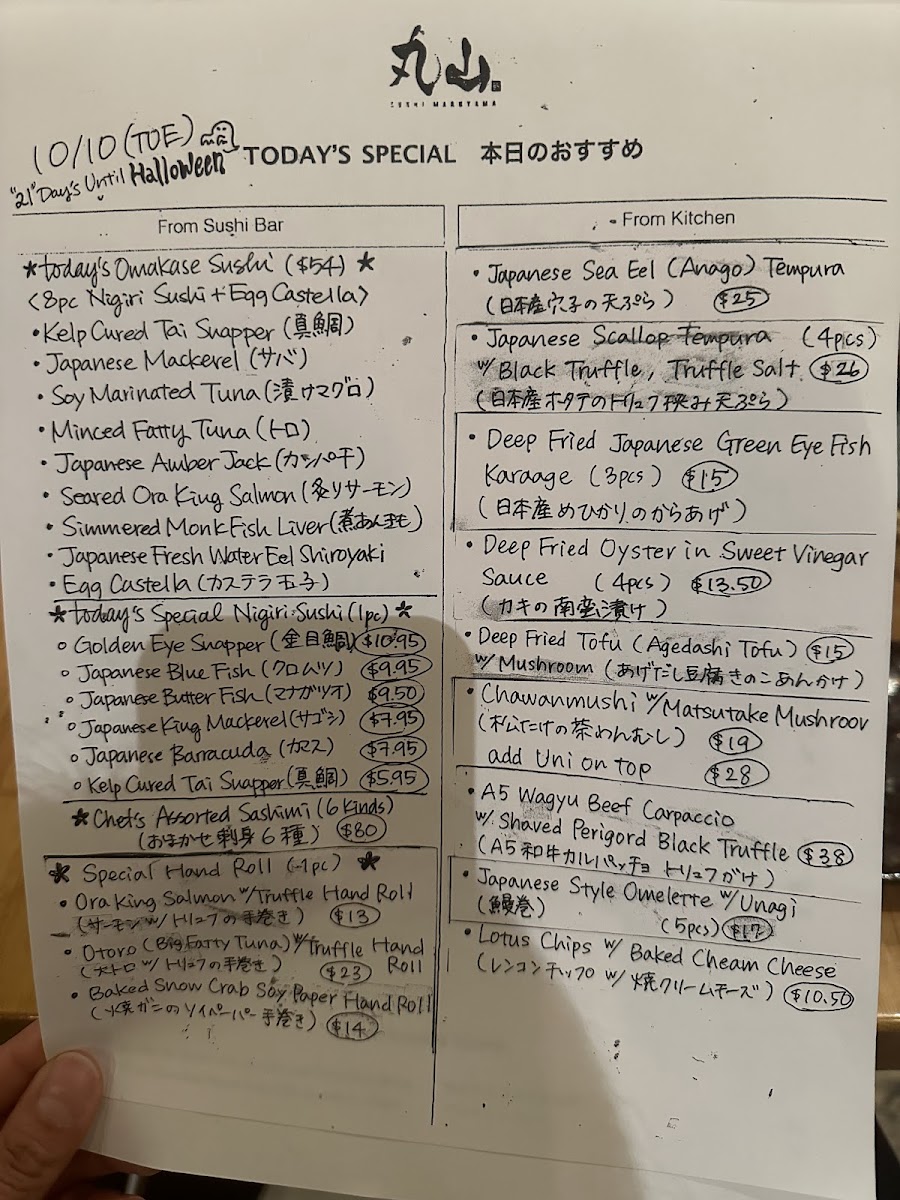 丸山
SUSHI MARUYAMA
10/10 (TUE)
"21" Day's Until Halloween
TODAY'S SPECIAL 本日のおすすめ
From Sushi Bar
★today's Omakase Sushi ($54) ★
<8pc Nigiri Sushi + Egg Castella>
・Kelp Cured Tai Snapper (真鯛)
・Japanese Mackerel (サバ)
・Soy Marinated Tuna (漬けマグロ)
・Minced Fatty Tuna (トロ)
・Japanese Amber Jack (カンパチ)
・Seared Ora King Salmon (炙りサーモン)
・Simmered Monk Fish Liver (煮あん肝)
・Japanese Fresh Water Eel Shiroyaki
・Egg Castella (カステラ玉子)
★today's Special Nigiri Sushi (1pc) ★
○ Golden Eye Snapper (金目鯛) $10.95
○ Japanese Blue Fish (クロムツ) $9.95
○ Japanese Butter Fish (マナガツオ) $9.50
○ Japanese King Mackerel (サゴシ) $7.95
○ Japanese Barracuda (カマス) $7.95
○ Kelp Cured Tai Snapper (真鯛) $5.95
★ Chef's Assorted Sashimi (6 kinds)
(おまかせ刺身6種) $80
★ Special Hand Roll (1pc) ★
・Ora King Salmon w/Truffle Hand Roll
(サーモン w/ トリュフの手巻き) $13
・Otoro (Big Fatty Tuna) w/Truffle Hand Roll
(大トロ w/ トリュフの手巻き) $23
・Baked Snow Crab Soy Paper Hand Roll
(焼ガニのソイペーパー手巻き) $14
From Kitchen
・Japanese Sea Eel (Anago) Tempura
(日本産穴子の天ぷら) $25
・Japanese Scallop Tempura (4pcs)
w/ Black Truffle, Truffle Salt $26
(日本産ホタテのトリュフ挟み天ぷら)
・Deep Fried Japanese Green Eye Fish
Karaage (3pcs) $15
(日本産めひかりのからあげ)
・Deep Fried Oyster in Sweet Vinegar
Sauce (4pcs) $13.50
(カキの南蛮漬け)
・Deep Fried Tofu (Agedashi Tofu) $15
w/ Mushroom (あげだし豆腐きのこあんかけ)
・Chawanmushi w/Matsutake Mushroom
(松たけの茶わんむし) $19
add Uni on top $28
・A5 Wagyu Beef Carpaccio
w/ Shaved Perigord Black Truffle $38
(A5和牛カルパッチョ トリュフがけ)
・Japanese Style Omelette w/Unagi
(鰻巻) (5pcs) $17
・Lotus Chips w/ Baked Cheam Cheese
(レンコンチップ w/ 焼クリームチーズ) $10.50